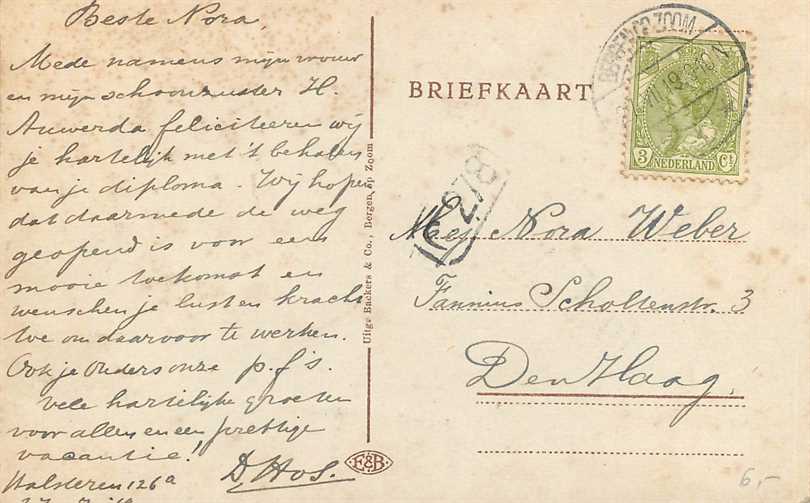 Beste Nora,
Mede namens mijn vrouw
en mijn schoonzuster H.
Auwerda feliciteeren wij
je hartelijk met 't behalen
van je diploma. Wij hopen
dat daarmede de weg
geopend is voor een
mooie toekomst en
wenschen je lust en kracht
toe om daarvoor te werken.
Ook je Ouders onze p.f's.
Vele hartelijke groeten
voor allen en een prettige
vacantie!
D Hos.
Halsteren 126a
Uitg. Backers & Co., Bergen op Zoom
E&B
BRIEFKAART
BERGEN OP ZOOM
3 NEDERLAND Ct
278
Mej Nora Weber
Fannius Scholtenstr. 3
Den Haag.
6,-